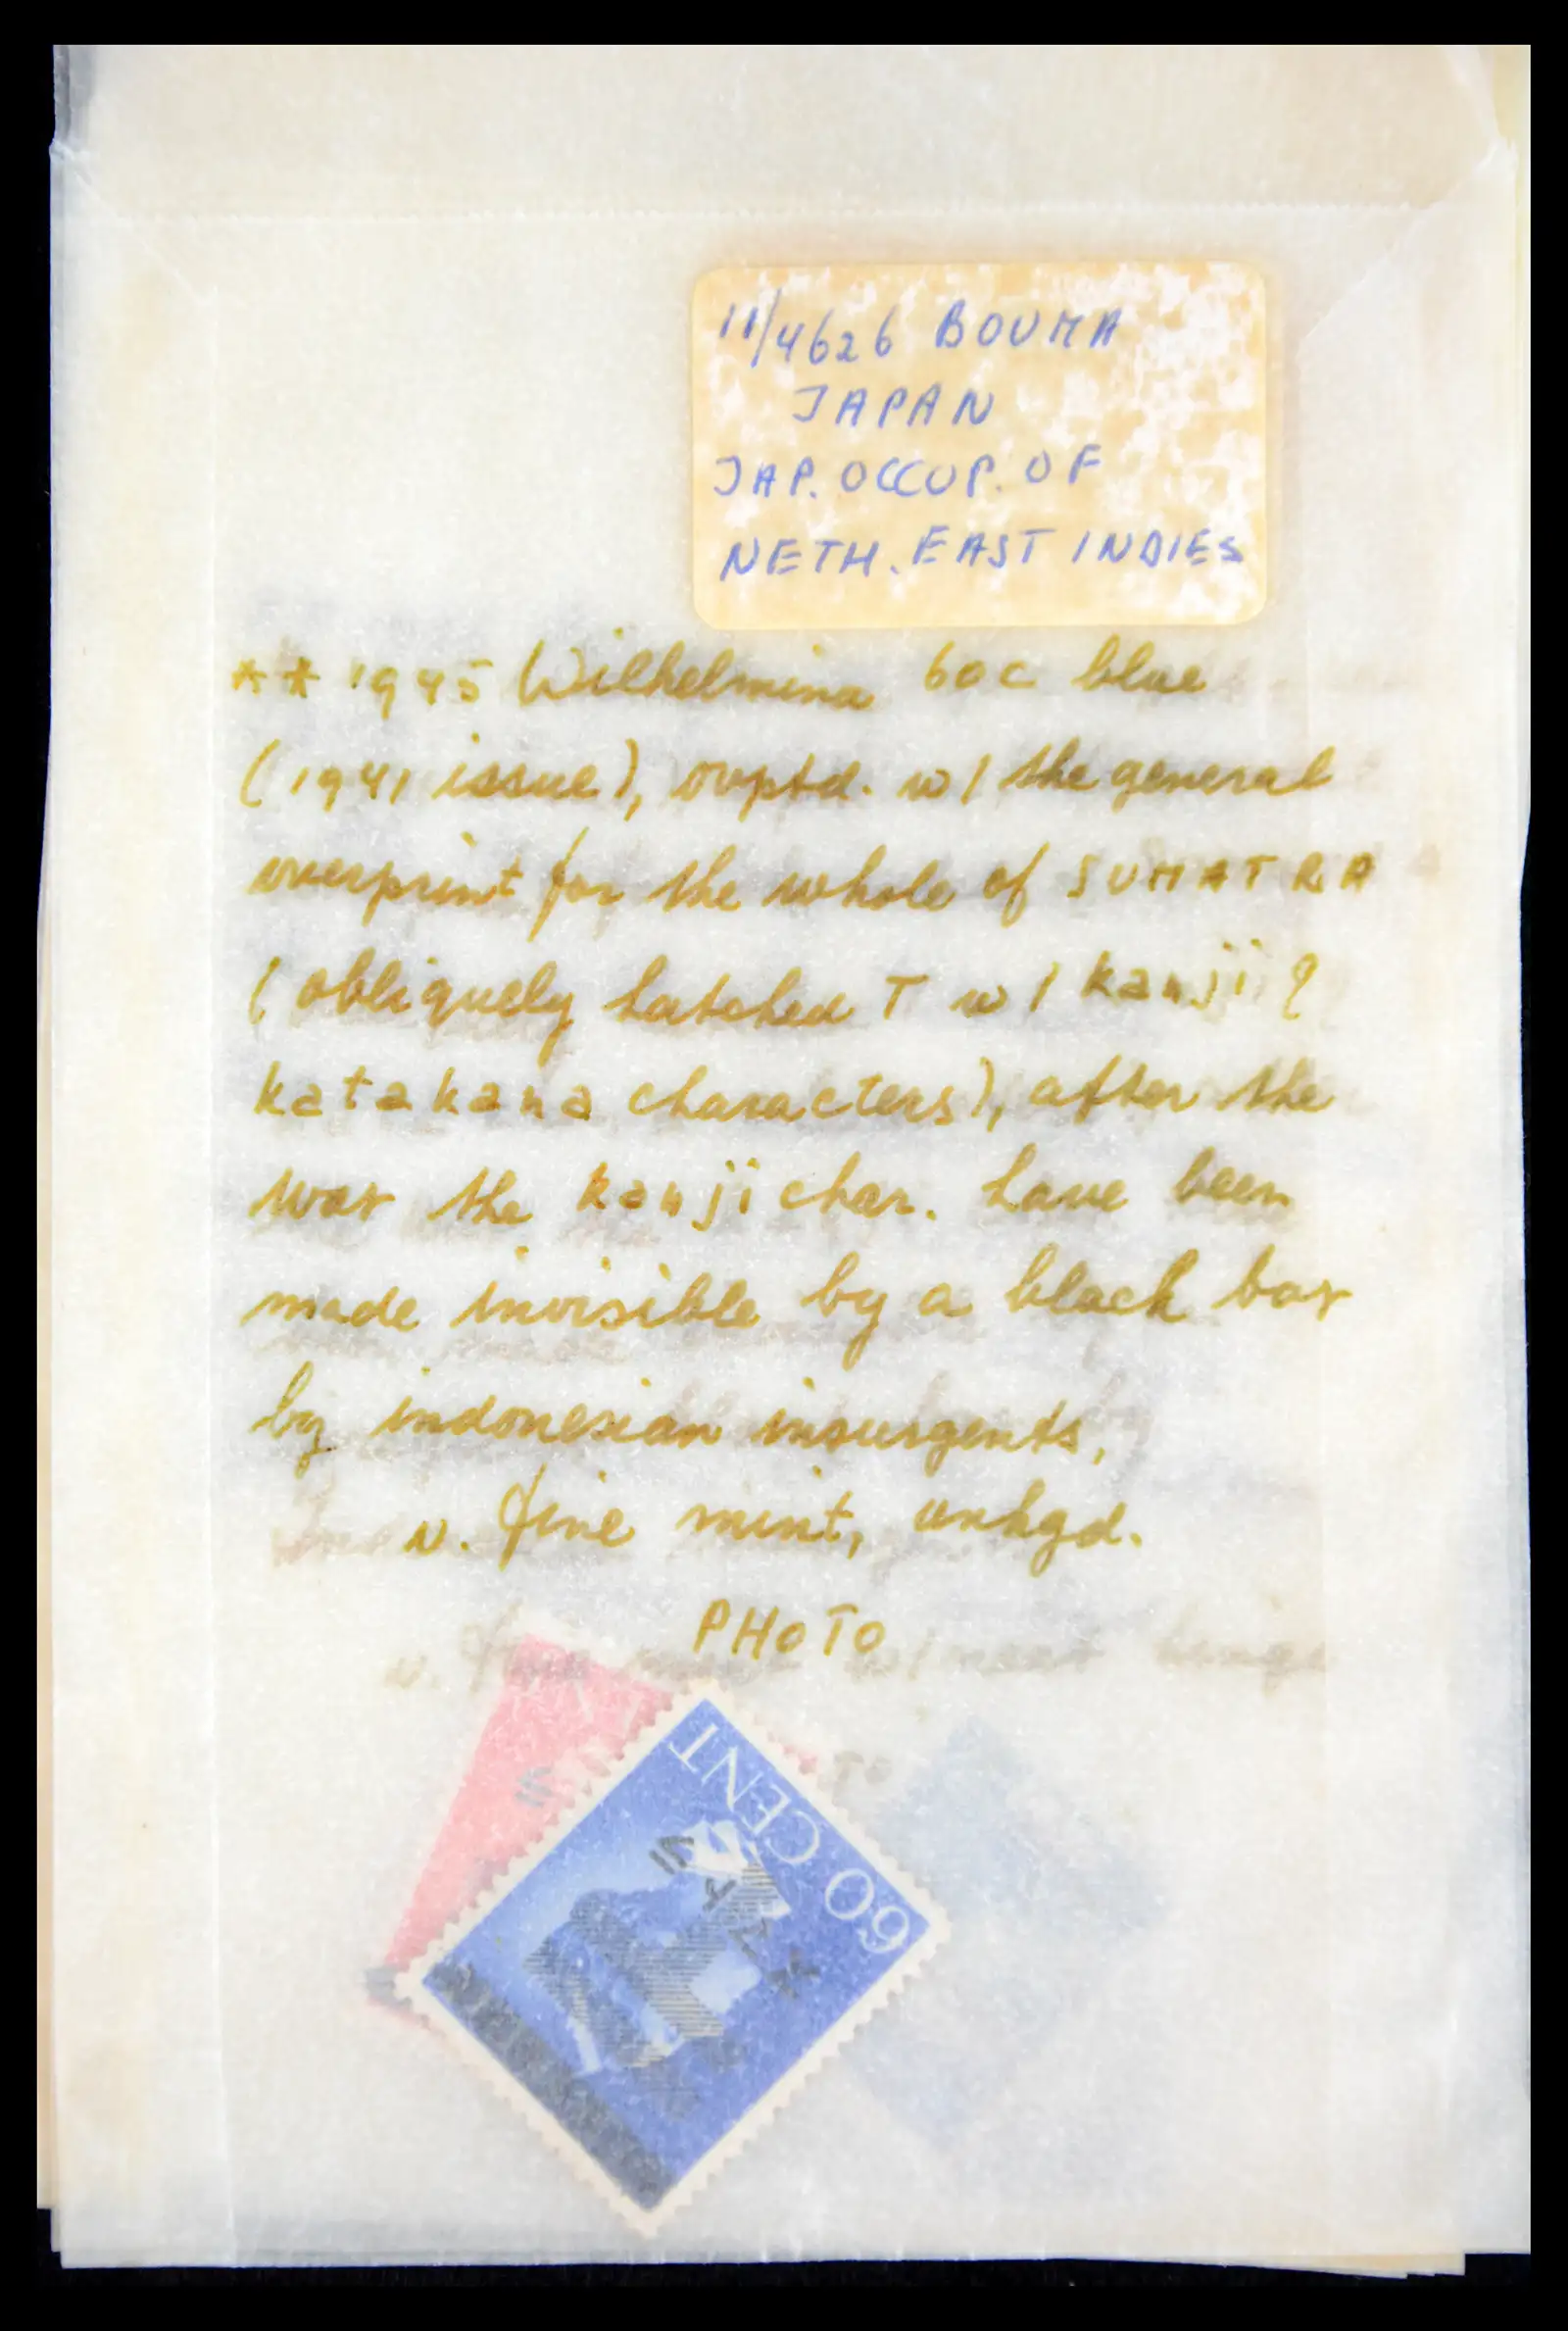 11/4626 BOUMA
JAPAN
JAP. OCCUP. OF
NETH. EAST INDIES
** 1945 Wilhelmina 60c blue
(1941 issue), ovptd. w/ the general
overprint for the whole of SUMATRA
(obliquely hatched T w/ kanji &
katakana characters), after the
war the kanji char. have been
made invisible by a black bar
by indonesian insurgents,
v. fine mint, unhgd.
PHOTO
60 CENT